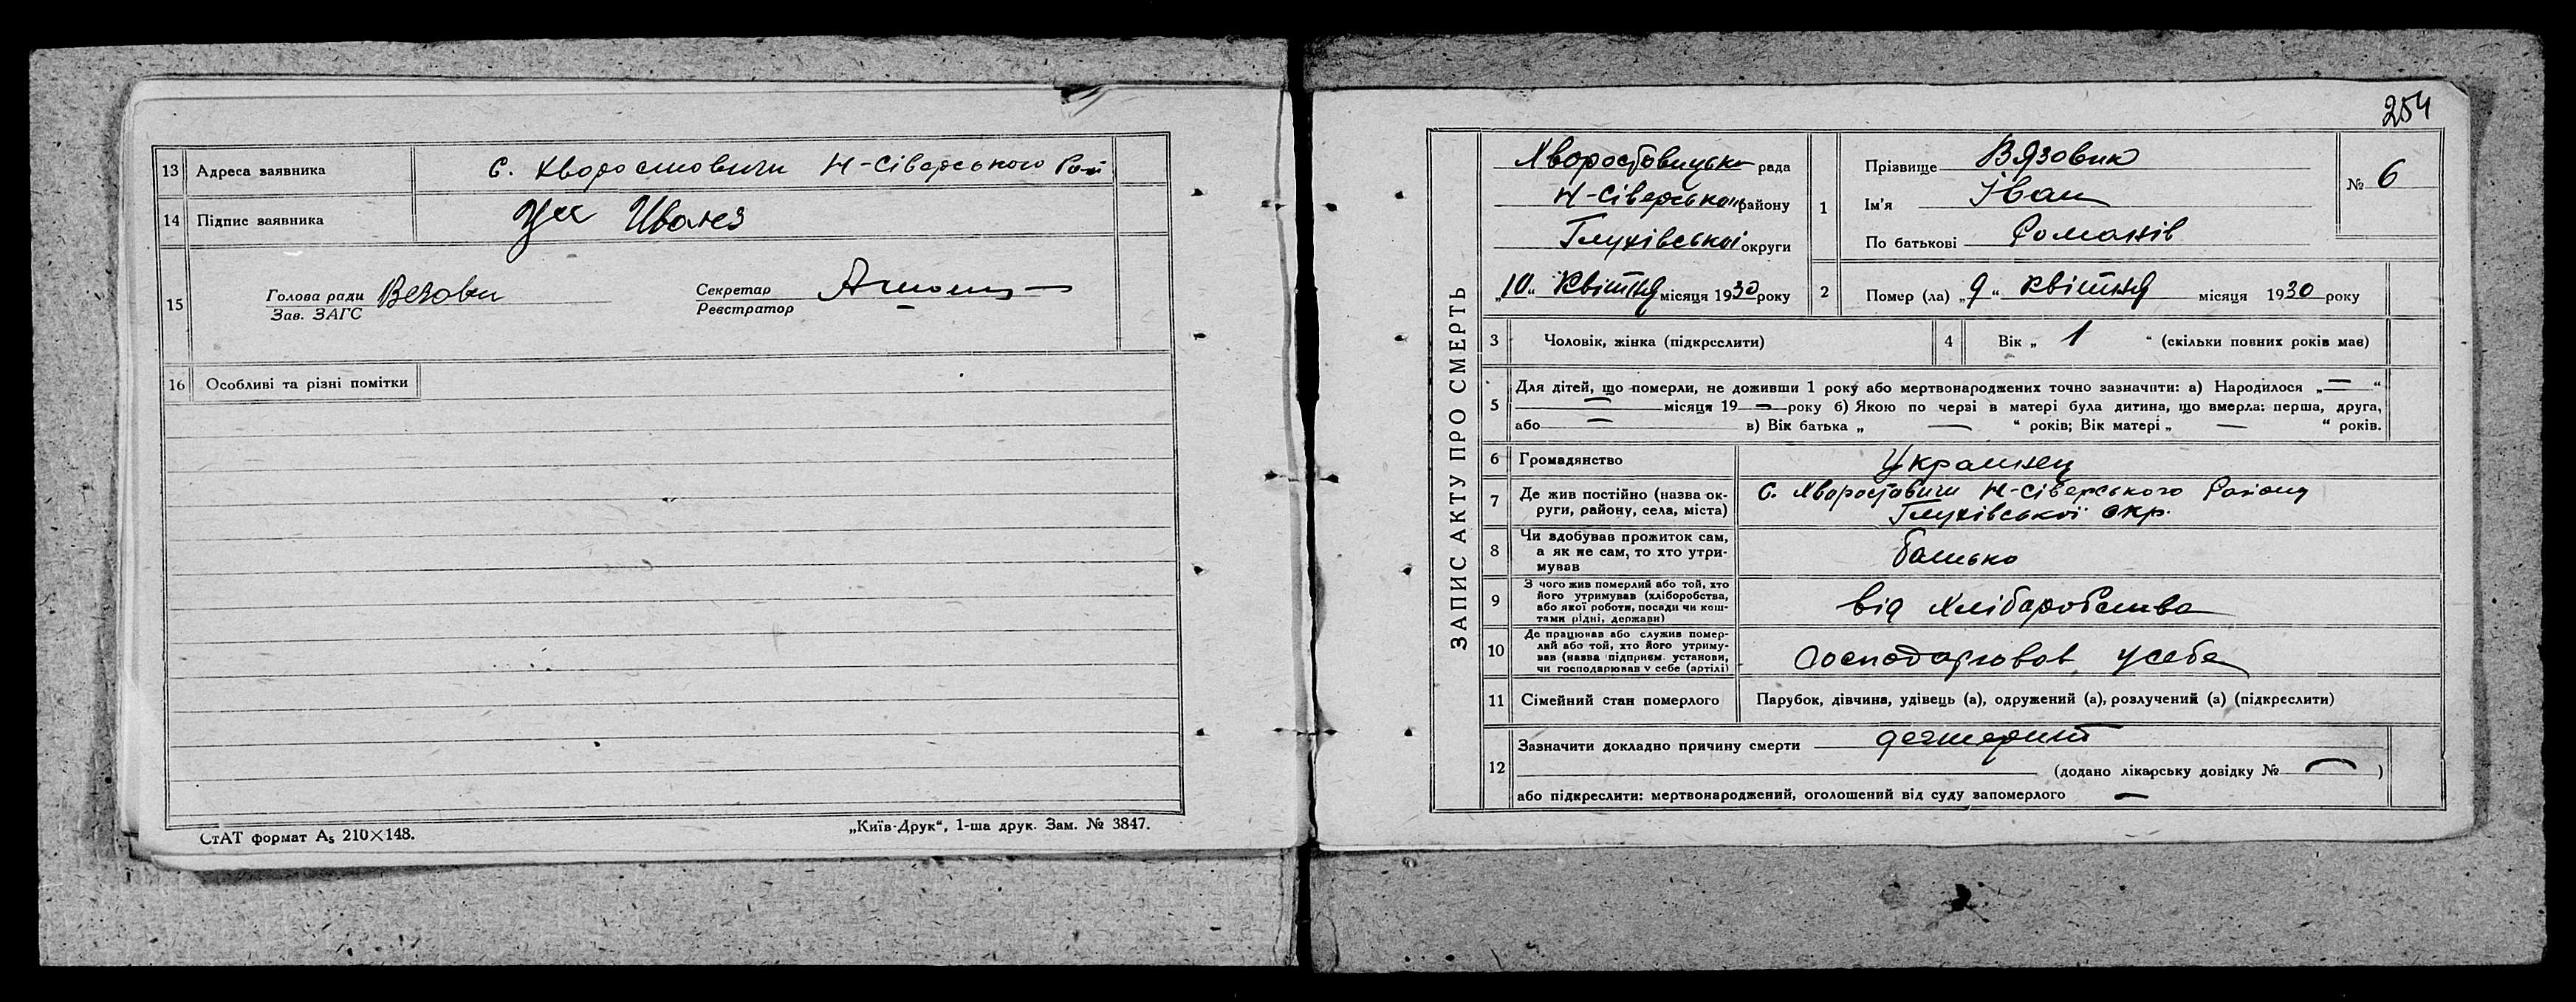 13 Адреса заявника с. Хворостовичи Н-Сіверського Рай
14 Підпис заявника
15 Голова ради Везови Секретар
Зав. ЗАГС Реєстратор
16 Особливі та різні помітки
СтАТ формат А5 210×148. „Київ-Друк“, 1-ша друк. Зам. № 3847.
254
ЗАПИС АКТУ ПРО СМЕРТЬ
Хворостовицька рада
Н-Сіверського району
Глухівської округи
„10“ Квітня місяця 1930 року
1 Прізвище Вязовик
Ім'я Іван
По батькові Романів
№ 6
2 Помер (ла) „9“ Квітня місяця 1930 року
3 Чоловік, жінка (підкреслити)
4 Вік „ 1 “ (скільки повних років має)
5 Для дітей, що померли, не доживши 1 року або мертвонароджених точно зазначити: а) Народилося „—“
— місяця 19 — року б) Якою по черзі в матері була дитина, що вмерла: перша, друга,
або — в) Вік батька „ — “ років; Вік матері „ — “ років.
6 Громадянство Украинец
7 Де жив постійно (назва ок-
руги, району, села, міста)
С. Хворостовичи Н-Сіверського Району
Глухівської окр.
8 Чи здобував прожиток сам,
а як не сам, то хто утри-
мував
батько
9 З чого жив померлий або той, хто
його утримував (хліборобства,
або якої роботи, посади чи кош-
тами рідні, держави)
від хліборобства
10 Де працював або служив помер-
лий або той, хто його утриму-
вав (назва підприєм. установи,
чи господарював у себе (артілі)
Господарював у себе
11 Сімейний стан померлого Парубок, дівчина, удівець (а), одружений (а), розлучений (а) (підкреслити)
12 Зазначити докладно причину смерти
(додано лікарську довідку № — )
або підкреслити: мертвонароджений, оголошений від суду запомерлого —